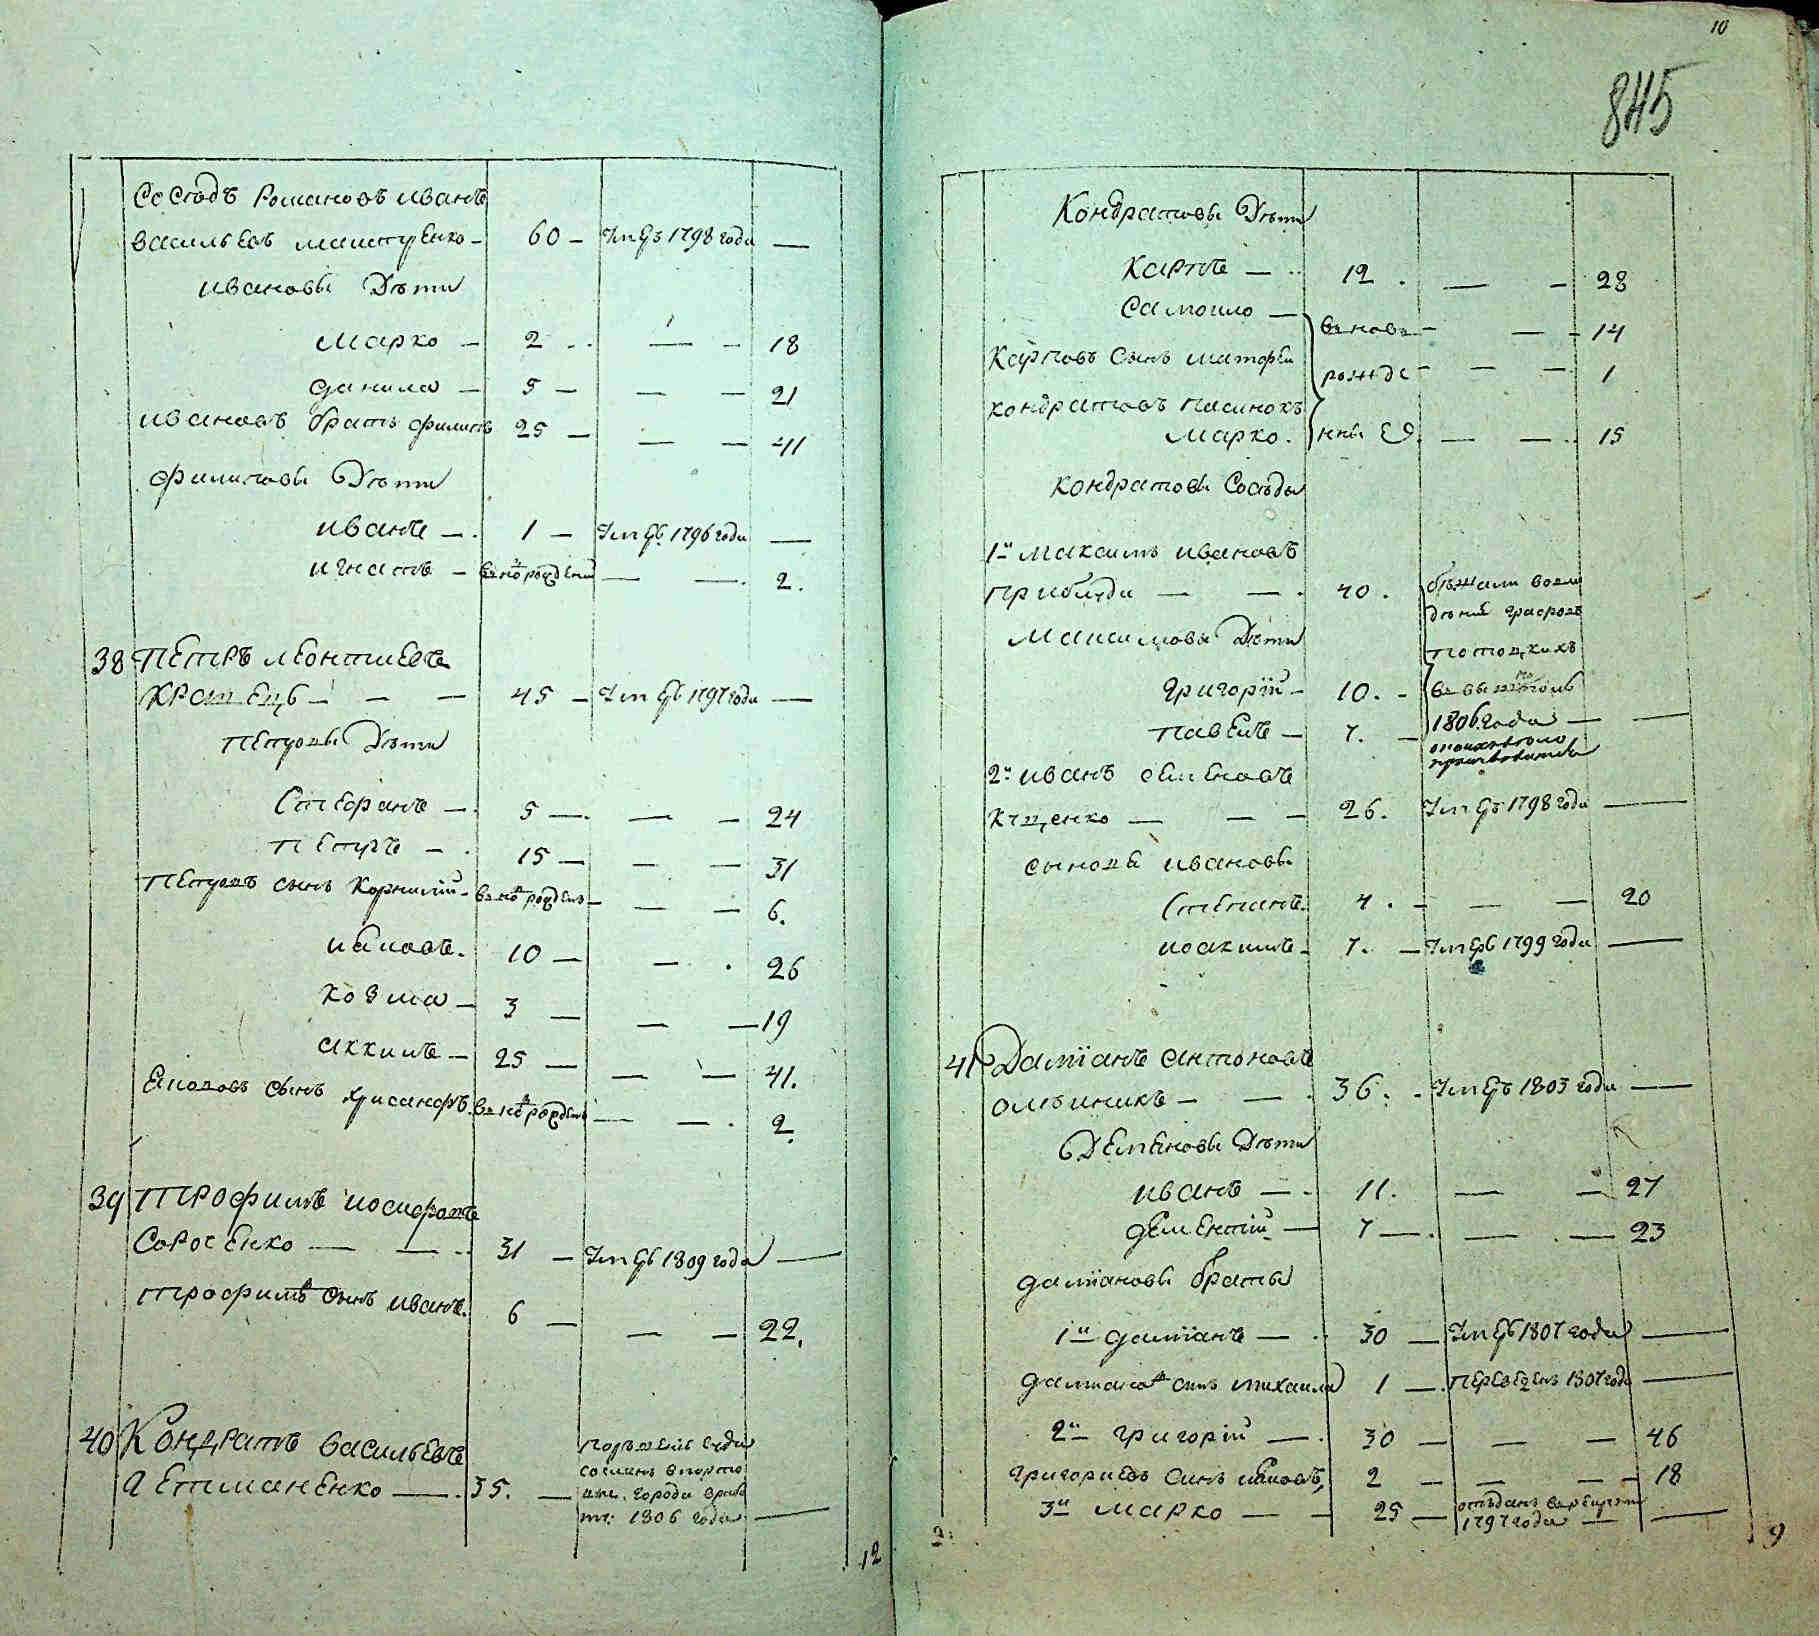 Соседъ Романовъ Иванъ
Васильевъ Маистренко — 60 — Умеръ 1798 года —
Ивановы Дѣти
Марко — 2 — — 18
Данило — 5 — — 21
Ивановъ братъ Филипъ 25 — — 41
Филиповы Дѣти
Иванъ — 1 — Умеръ 1796 года —
Игнатъ — в новорожденъ — — 2.
38 Петръ Леонтиевъ
45 — Умеръ 1797 года —
Петровы Дѣти
Стефанъ — 5 — — 24
Петръ — 15 — — 31
Петровъ сынъ Корнилій — в новорожден — — 6.
Иаковъ. 10 — — 26
Козма — 3 — — 19
Аккимъ — 25 — — 41.
сынъ Хрисанфъ. в новорожденъ — — 2.
39 Трофимъ Иосифовъ
Соросенко — — 31 — Умеръ 1809 года —
Трофимовъ сынъ Иванъ. 6 — — 22.
40 Кондратъ Васильевъ
Гетманенко — 35. —
города
1806 года —
12
10
845
Кондратовы Дѣти
Карпъ — 12. — — 28
Самоило — в ново — — 14
Карповъ сынъ Матфей рожде — — 1
Кондратовъ пасинокъ
Марко. нные — — 15
Кондратовы Соседы
1й Максимъ Ивановъ
Прибида — — 40. бѣжали во вла
дѣніе графовъ
Максимовы Дѣти
Потоцкихъ
Григорій — 10. —
Павелъ — 7. — 1806 года — —
2й Иванъ Семеновъ
Куценко — — — 26. Умеръ 1798 года —
сынове Ивановы
Степанъ. 4. — — — 20
Иоакимъ — 7. — Умеръ 1799 года —
41 Даміанъ Антоновъ
Олѣиникъ — — 36. — Умеръ 1803 года —
Деменовы Дѣти
Иванъ — 11. — — 27
Дементій — 7 — — — 23
Даміановы браты
1й Даміанъ — 30 — Умеръ 1807 года —
Даміановъ сынъ Михаила 1 — Переведенъ 1807 года —
2й Григорій — 30 — — — 46
Григориевъ Синъ Иаковъ, 2 — — — 18
3й Марко — — 25 — отъданъ в рекруты
1797 года — —
2:
9